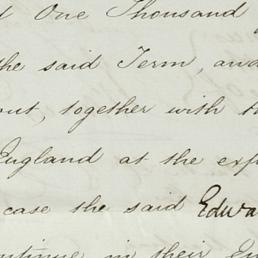 One Thousand
the said Term, and
out, together with
England at the
case the said
in their